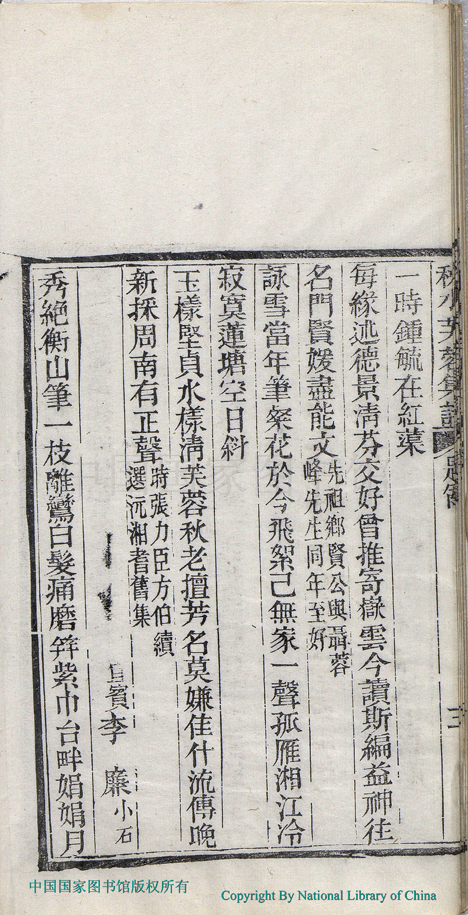 一時鍾毓在紅蕖
每緣述德景清芬交好曾推寄嶽雲今讀斯編益神往
名門賢媛盡能文先祖鄉賢公與聶蓉峰先生同年至好
詠雪當年筆粲花於今飛絮已無家一聲孤雁湘江冷
寂寞蓮塘空日斜
玉樣堅貞水樣清芙蓉秋老擅芳名莫嫌佳什流傳晚
新採周南有正聲時張力臣方伯續選沅湘耆舊集
宜賓李廉小石
秀絕衡山筆一枝離鸞白髮痛磨笄紫巾台畔娟娟月
三
中国国家图书馆版权所有
Copyright By National Library of China